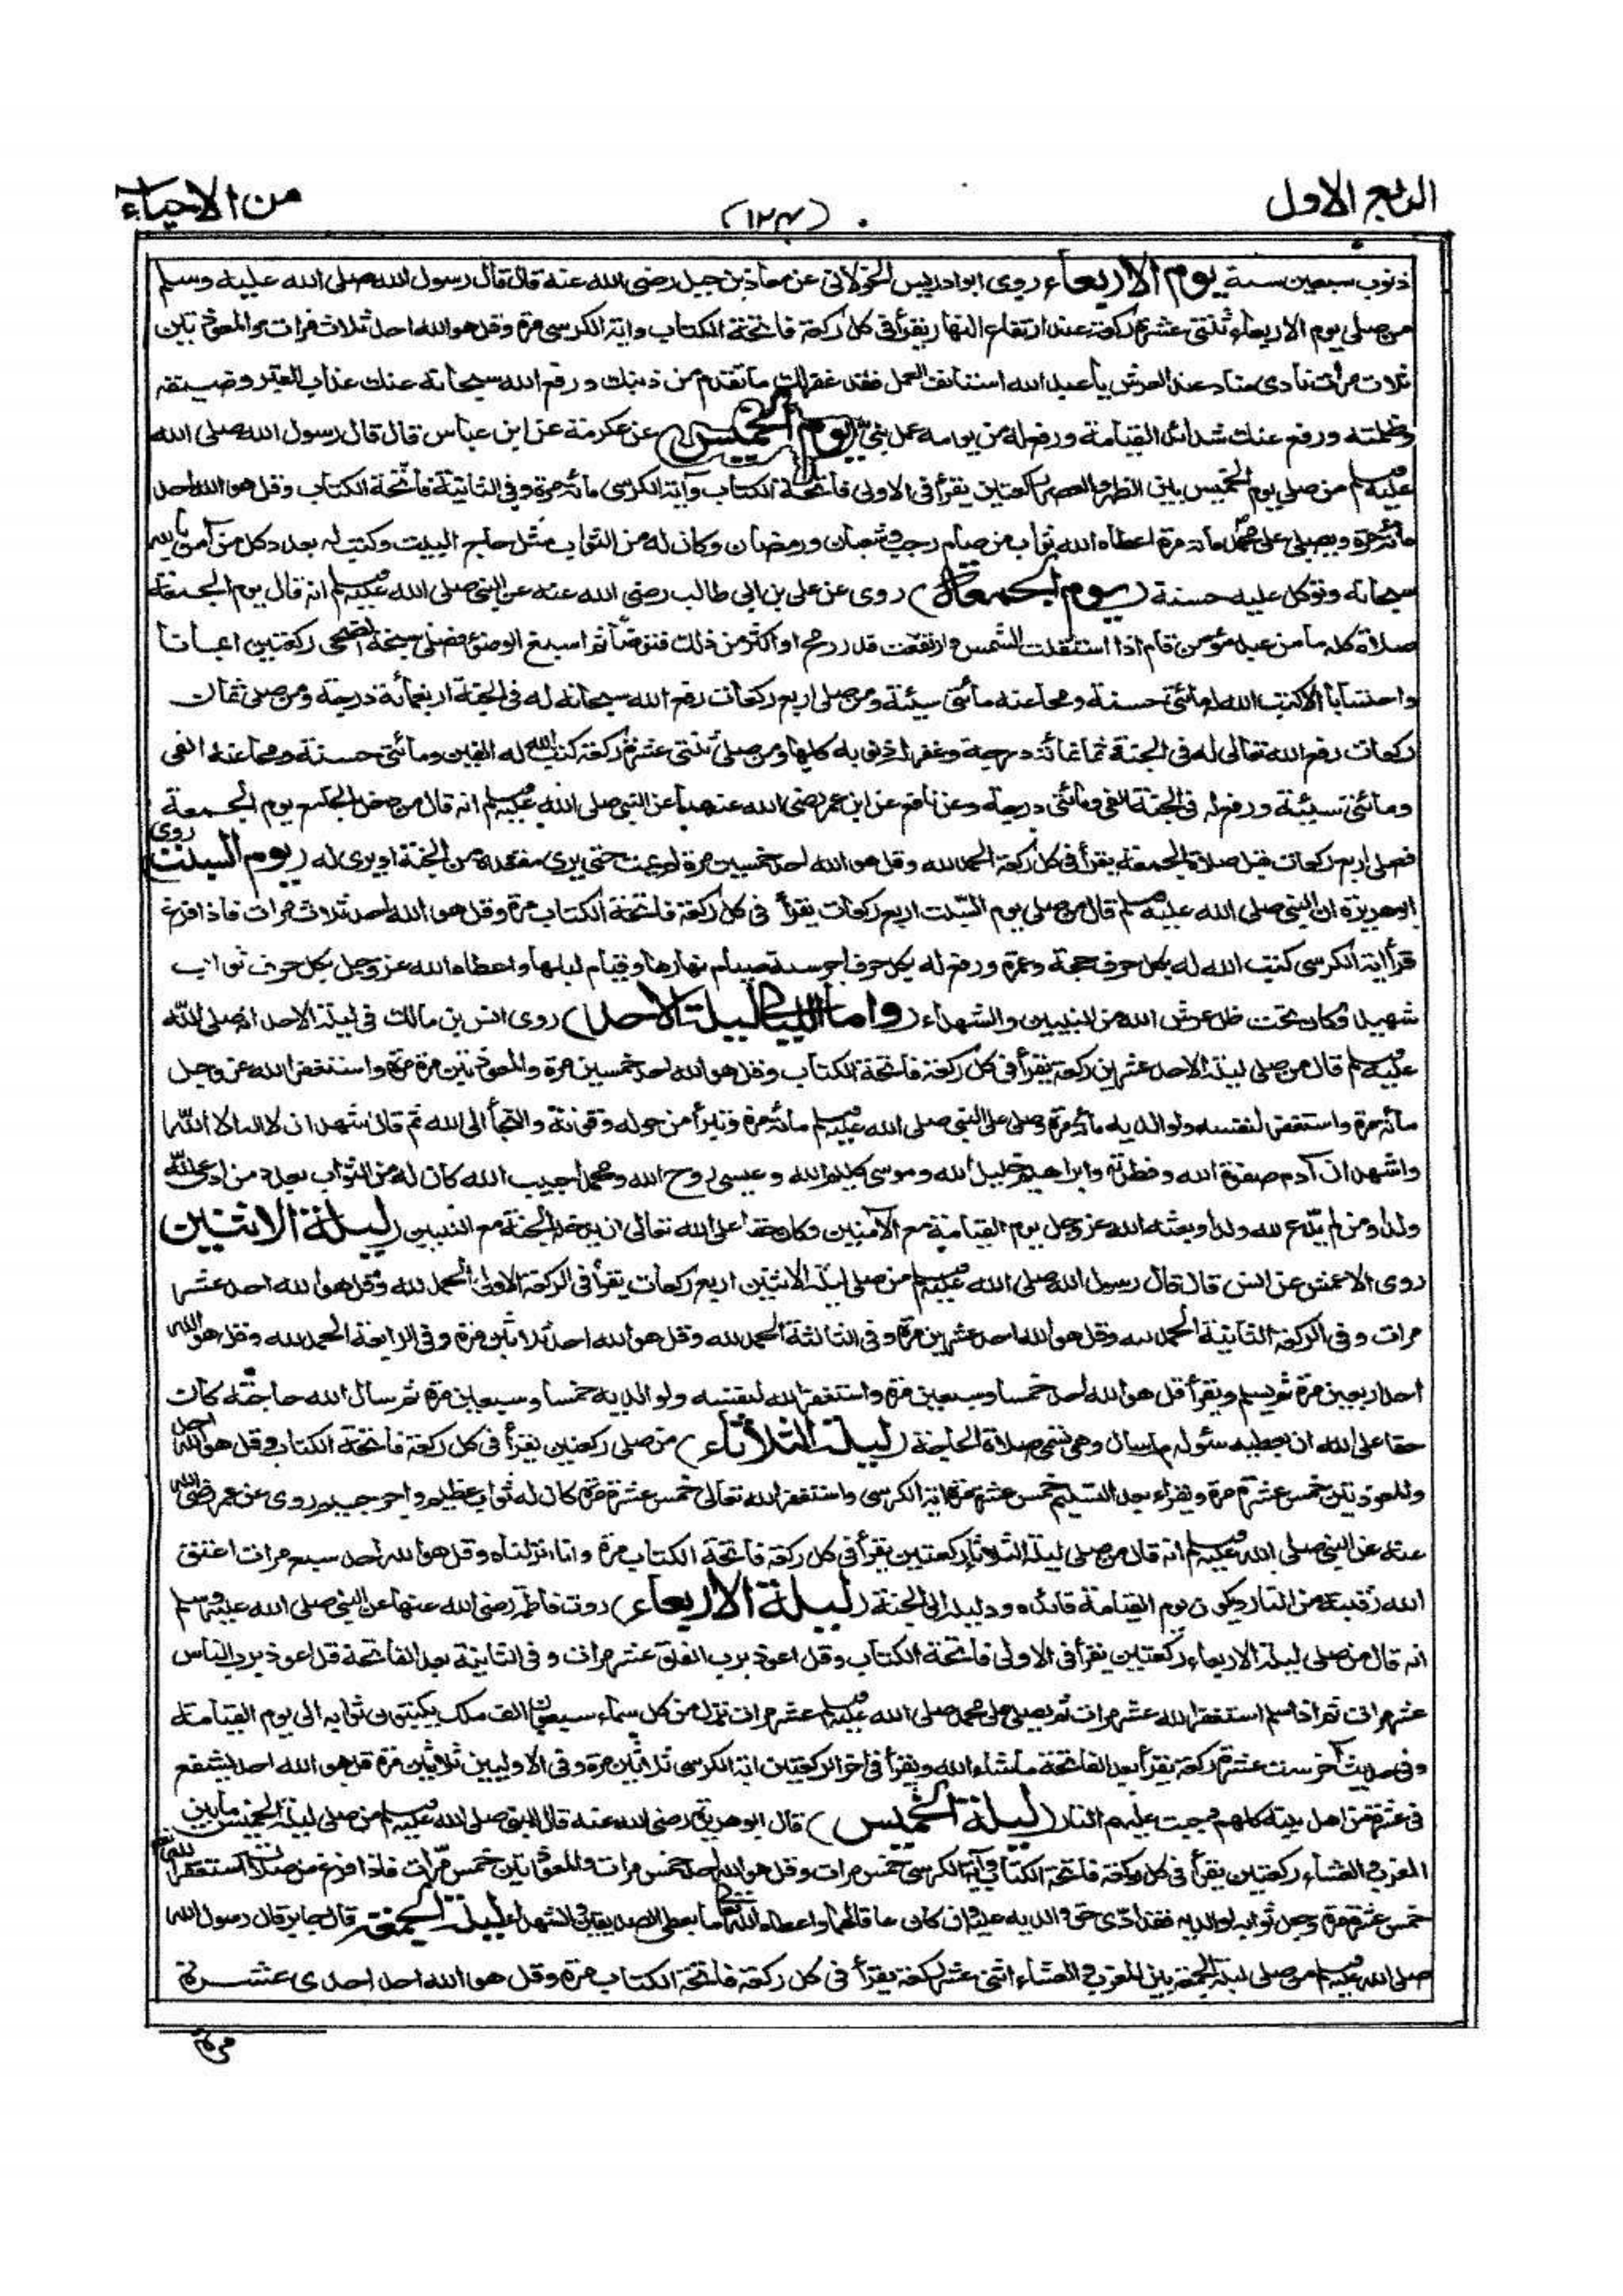 الربع الاول
(١٢٤)
من الاحياء
ذنوب سبعين سنة يوم الاربعاء روى ابوادريس الخولانى عن معاذ بن جبل رضى الله عنه قال قال رسول الله صلى الله عليه وسلم
من صلى يوم الاربعاء ثنتى عشرة ركعة عند ارتفاع النهار يقرأ فى كل ركعة فاتحة الكتاب واية الكرسى مرة وقل هو الله احد ثلاث مرات والمعوذتين
ثلاث مرات نادى مناد عند العرش يا عبد الله استانف العمل فقد غفر لك ما تقدم من ذنبك ورفع الله سبحانه عنك عذاب القبر وضيقه
وظلمته ورفع عنك شدائد القيامة ورفع له من يومه عمل نبى (يوم الخميس) عن عكرمة عن ابن عباس قال قال رسول الله صلى الله
عليه وسلم من صلى يوم الخميس بين الظهر والعصر ركعتين يقرأ فى الاولى فاتحة الكتاب وآية الكرسى مائة مرة وفى الثانية فاتحة الكتاب وقل هو الله احد
مائة مرة ويصلى على محمد مائة مرة اعطاه الله ثواب من صام رجب وشعبان ورمضان وكان له من الثواب مثل حاج البيت وكتب له بعدد كل من آمن بالله
سبحانه وتوكل عليه حسنة (يوم الجمعة) روى عن على بن ابى طالب رضى الله عنه عن النبى صلى الله عليه وسلم انه قال يوم الجمعة
صلاة كله ما من عبد مؤمن قام اذا استقلت الشمس وارتفعت قدر رمح او اكثر من ذلك فتوضأ ثم اسبغ الوضوء فصلى سبحة الضحى ركعتين ايمانا
واحتسابا الا كتب الله له مائتى حسنة ومحا عنه مائتى سيئة ومن صلى اربع ركعات رفع الله سبحانه له فى الجنة اربعمائة درجة ومن صلى ثمان
ركعات رفع الله تعالى له فى الجنة ثمانمائة درجة وغفر له ذنوبه كلها ومن صلى ثنتى عشرة ركعة كتب الله له الفين ومائتى حسنة ومحا عنه الفى
ومائتى سيئة ورفع له فى الجنة الفى ومائتى درجة وعن نافع عن ابن عمر رضى الله عنهما عن النبى صلى الله عليه وسلم انه قال من دخل الجامع يوم الجمعة
فصلى اربع ركعات قبل صلاة الجمعة يقرأ فى كل ركعة الحمد لله وقل هو الله احد خمسين مرة لم يمت حتى يرى مقعده من الجنة او يرى له (يوم السبت) روى
ابوهريرة ان النبى صلى الله عليه وسلم قال من صلى يوم السبت اربع ركعات يقرأ فى كل ركعة فاتحة الكتاب مرة وقل هو الله احد ثلاث مرات فاذا فرغ
قرأ اية الكرسى كتب الله له بكل حرف حجة وعمرة ورفع له بكل حرف اجر سنة صيام نهارها وقيام ليلها واعطاه الله عز وجل بكل حرف ثواب
شهيد وكان تحت ظل عرش الله مع النبيين والشهداء (واما الليالى ليلة الاحد) روى انس بن مالك فى ليلة الاحد انه صلى الله
عليه وسلم قال من صلى ليلة الاحد عشرين ركعة يقرأ فى كل ركعة فاتحة الكتاب وقل هو الله احد خمسين مرة والمعوذتين مرة مرة واستغفر الله عز وجل
مائة مرة واستغفر لنفسه ولوالديه مائة مرة وصلى على النبى صلى الله عليه وسلم مائة مرة وتبرأ من حوله وقوته والتجأ الى الله ثم قال اشهد ان لا اله الا الله
واشهد ان آدم صفوة الله وفطرته وابراهيم خليل الله وموسى كليم الله وعيسى روح الله ومحمدا حبيب الله كان له من الثواب بعدد من ادعى لله
ولدا ومن لم يدع لله ولدا وبعثه الله عز وجل يوم القيامة مع الآمنين وكان حقا على الله تعالى ان يدخله الجنة مع النبيين (ليلة الاثنين
روى الاعمش عن انس قال قال رسول الله صلى الله عليه وسلم من صلى ليلة الاثنين اربع ركعات يقرأ فى الركعة الاولى الحمد لله وقل هو الله احد عشر
مرات وفى الركعة الثانية الحمد لله وقل هو الله احد عشرين مرة وفى الثالثة الحمد لله وقل هو الله احد ثلاثين مرة وفى الرابعة الحمد لله وقل هو الله
احد اربعين مرة ثم يسلم ويقرأ قل هو الله احد خمسا وسبعين مرة واستغفر الله لنفسه ولوالديه خمسا وسبعين مرة ثم سال الله حاجته كان
حقا على الله ان يعطيه سئوله ما سال وهى تسمى صلاة الحاجة (ليلة الثلاثاء) من صلى ركعتين يقرأ فى كل ركعة فاتحة الكتاب وقل هو الله احد
والمعوذتين خمس عشرة مرة ويقرأ بعد التسليم خمس عشرة مرة اية الكرسى واستغفر الله تعالى خمس عشرة مرة كان له ثواب عظيم واجر جسيم وروى عن عمر رضى الله
عنه عن النبى صلى الله عليه وسلم انه قال من صلى ليلة الثلاثاء ركعتين يقرأ فى كل ركعة فاتحة الكتاب مرة وانا انزلناه وقل هو الله احد سبع مرات اعتق
الله رقبته من النار ويكون يوم القيامة قائده ودليله الى الجنة (ليلة الاربعاء) روت فاطمة رضى الله عنها عن النبى صلى الله عليه وسلم
انه قال من صلى ليلة الاربعاء ركعتين يقرأ فى الاولى فاتحة الكتاب وقل اعوذ برب الفلق عشر مرات وفى الثانية بعد الفاتحة قل اعوذ برب الناس
عشر مرات ثم اذا سلم استغفر الله عشر مرات ثم يصلى على محمد صلى الله عليه وسلم عشر مرات نزل من كل سماء سبعون الف ملك يكتبون ثوابه الى يوم القيامة
وفى حديث آخر ست عشرة ركعة يقرأ بعد الفاتحة ما شاء الله ويقرأ فى اخر الركعتين اية الكرسى ثلاثين مرة وفى الاوليين ثلاثين مرة قل هو الله احد يشفع
فى عشرة من اهل بيته كلهم وجبت عليهم النار (ليلة الخميس) قال ابو هريرة رضى الله عنه قال النبى صلى الله عليه وسلم من صلى ليلة الخميس ما بين
المغرب والعشاء ركعتين يقرأ فى كل ركعة فاتحة الكتاب وآية الكرسى خمس مرات وقل هو الله احد خمس مرات والمعوذتين خمس مرات فاذا فرغ من صلاته استغفر الله تعالى
خمس عشرة مرة وجعل ثوابه لوالديه فقد ادى حق والديه عليه وان كان عاقا لهما واعطاه الله تعالى ما يعطى الصديقين والشهداء ليلة الجمعة قال جابر قال رسول الله
صلى الله عليه وسلم من صلى ليلة الجمعة بين المغرب والعشاء اثنى عشر ركعة يقرأ فى كل ركعة فاتحة الكتاب مرة وقل هو الله احد احدى عشرة
مرة